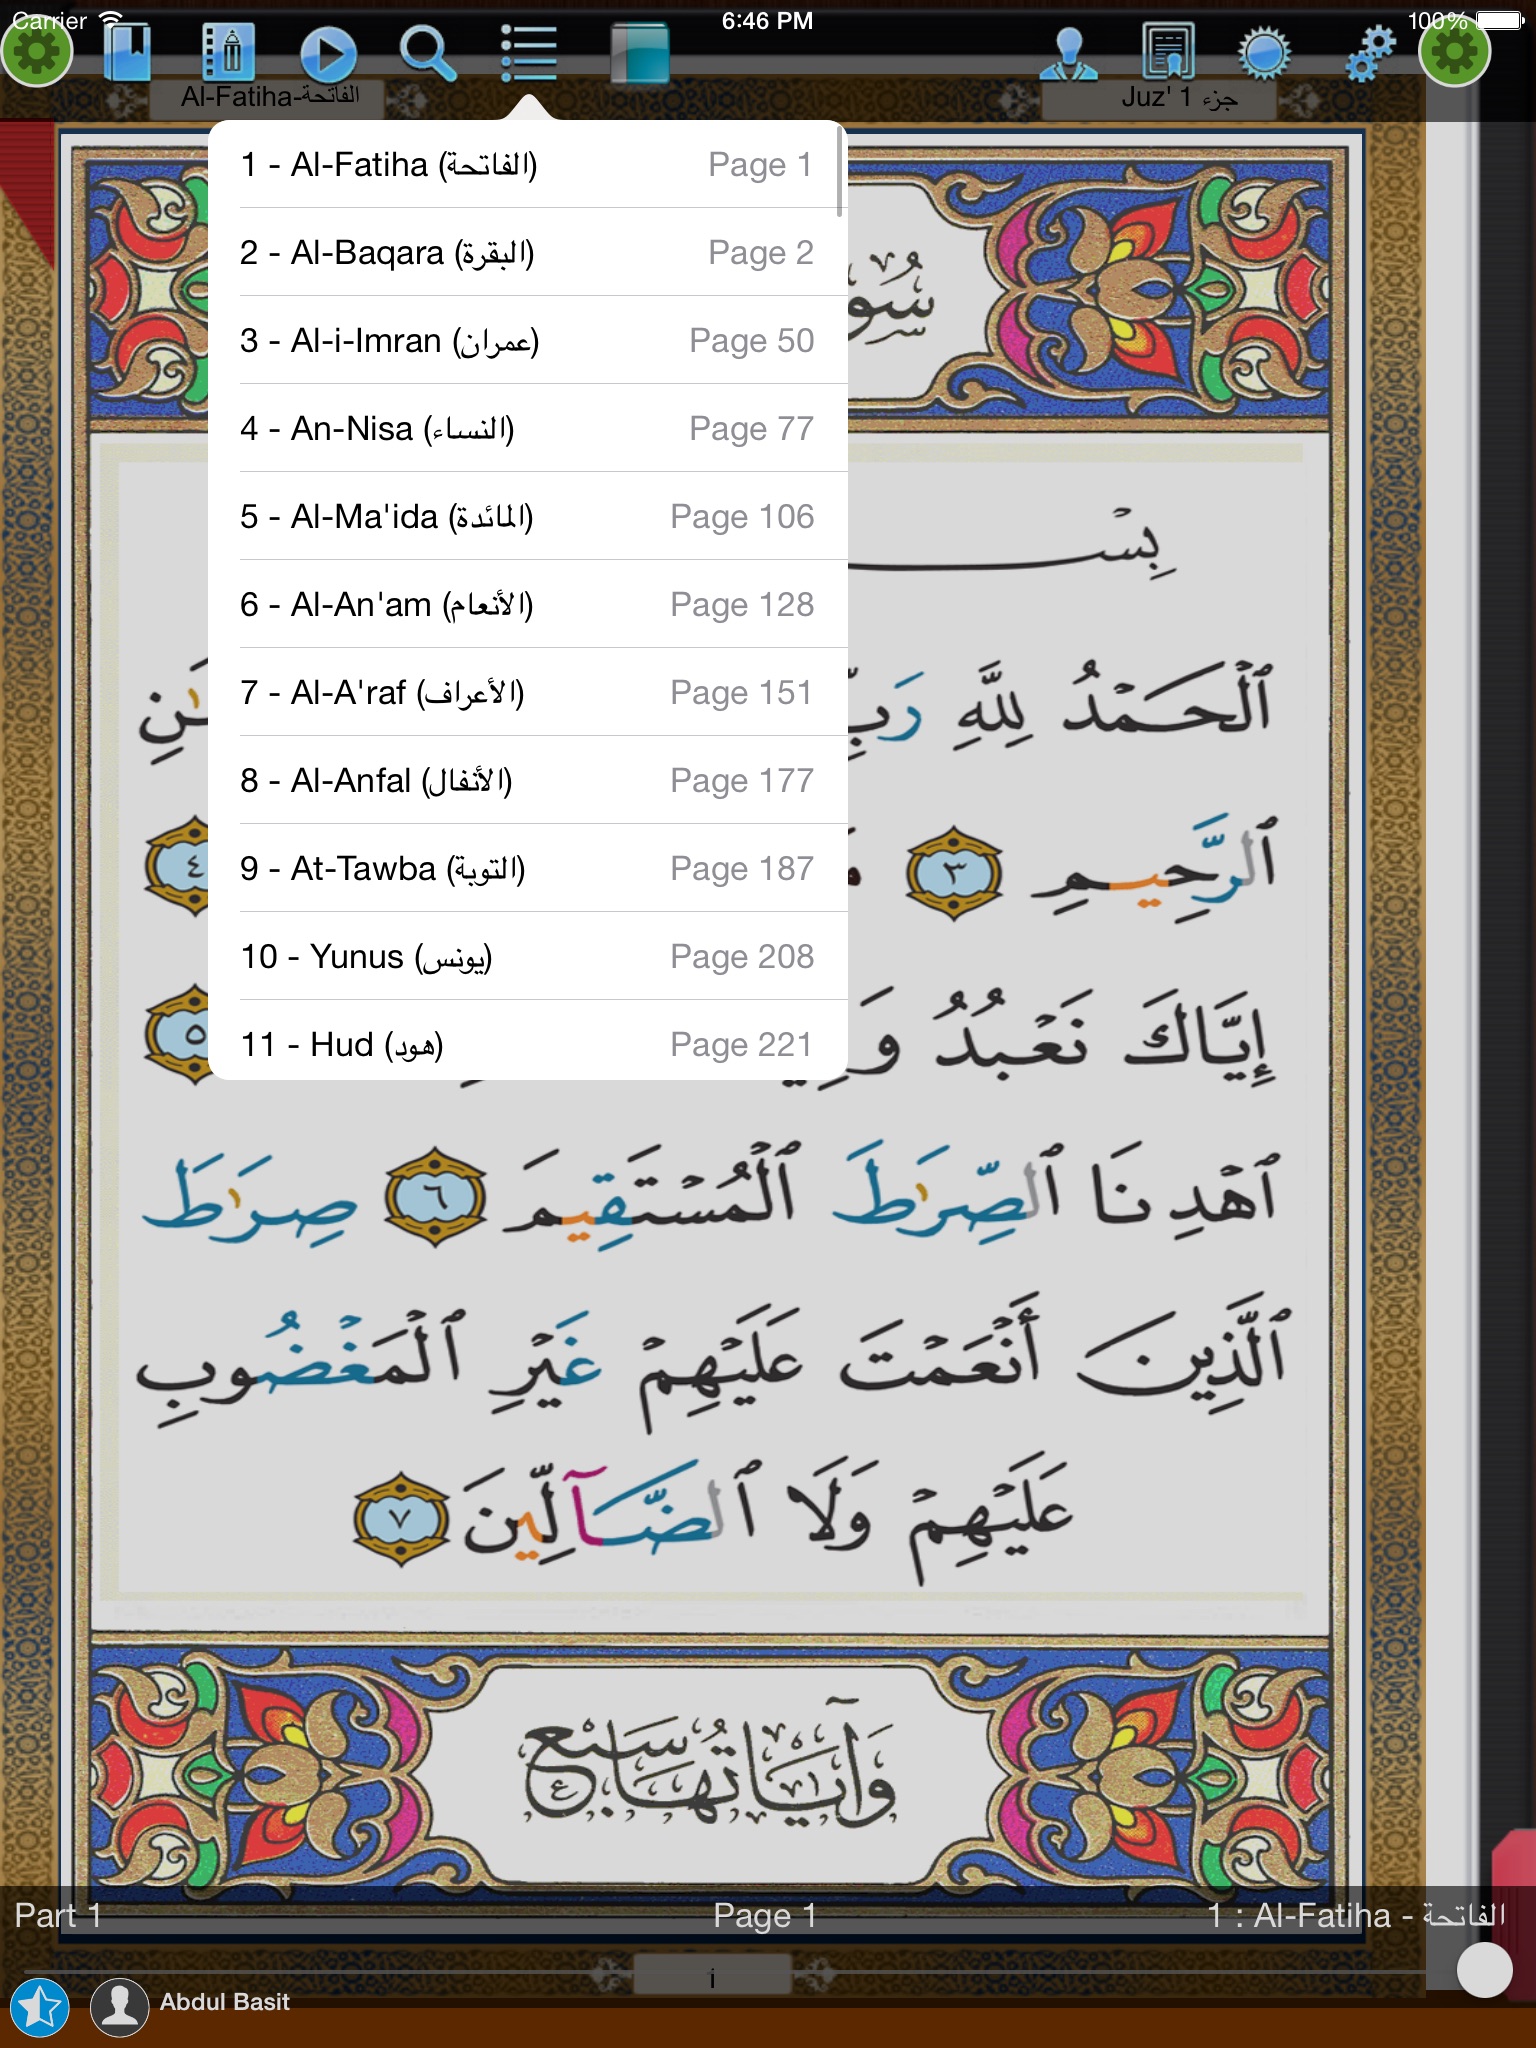 Carrier 6:46 PM 100%
Al-Fatiha-الفاتحة Juz' 1 جزء
1 - Al-Fatiha (الفاتحة) Page 1
2 - Al-Baqara (البقرة) Page 2
3 - Al-i-Imran (عمران) Page 50
4 - An-Nisa (النساء) Page 77
5 - Al-Ma'ida (المائدة) Page 106
6 - Al-An'am (الأنعام) Page 128
7 - Al-A'raf (الأعراف) Page 151
8 - Al-Anfal (الأنفال) Page 177
9 - At-Tawba (التوبة) Page 187
10 - Yunus (يونس) Page 208
11 - Hud (هود) Page 221
بِسْ
ٱلْحَمْدُ لِلَّهِ رَبِّ
ٱلرَّحِيمِ ٣ ٤
إِيَّاكَ نَعْبُدُ ٥
ٱهْدِنَا ٱلصِّرَٰطَ ٱلْمُسْتَقِيمَ ٦ صِرَٰطَ
ٱلَّذِينَ أَنْعَمْتَ عَلَيْهِمْ غَيْرِ ٱلْمَغْضُوبِ
عَلَيْهِمْ وَلَا ٱلضَّآلِّينَ ٧
وَآيَاتُهَا سَبْع
Part 1 Page 1 1 : Al-Fatiha - الفاتحة
Abdul Basit